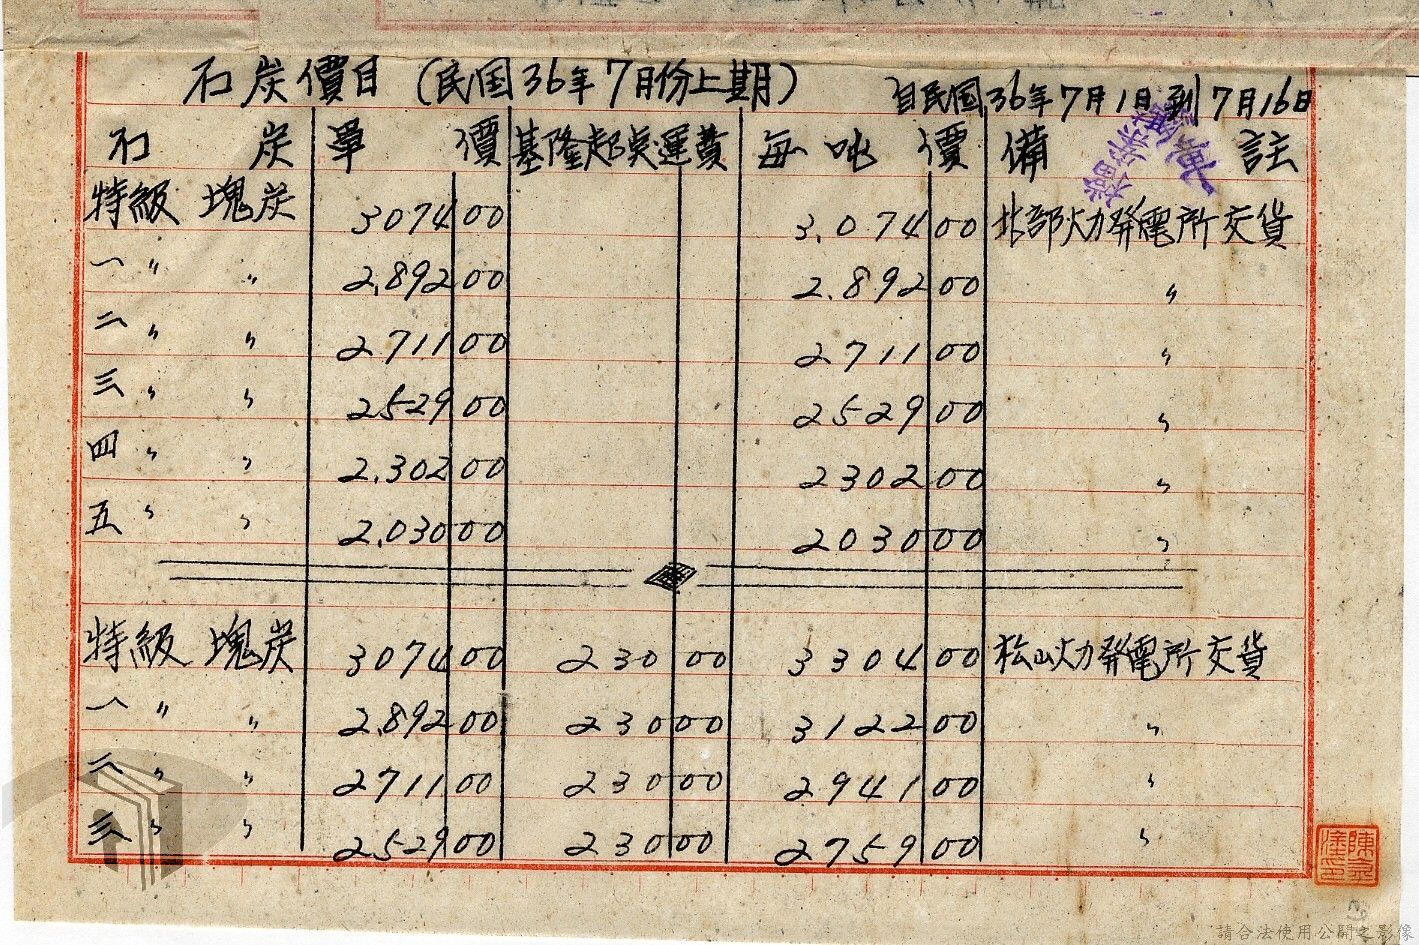 石炭價目(民国36年7月份上期)
自民国36年7月1日到7月16日
石炭 單價 基隆起点運費 每吨價 備註
特級塊炭 3074 00 3,074 00 北部火力發電所交貨
一 〃 〃 2,892 00 2,892 00 〃
二 〃 〃 2711 00 2711 00 〃
三 〃 〃 2529 00 2529 00 〃
四 〃 〃 2,302 00 2302 00 〃
五 〃 〃 2,030 00 2030 00 〃
特級塊炭 3074 00 230 00 3304 00 松山火力發電所交貨
一 〃 〃 2,892 00 230 00 3122 00 〃
二 〃 〃 2711 00 230 00 2941 00 〃
三 〃 〃 2529 00 230 00 2759 00 〃
請合法使用公開之影像